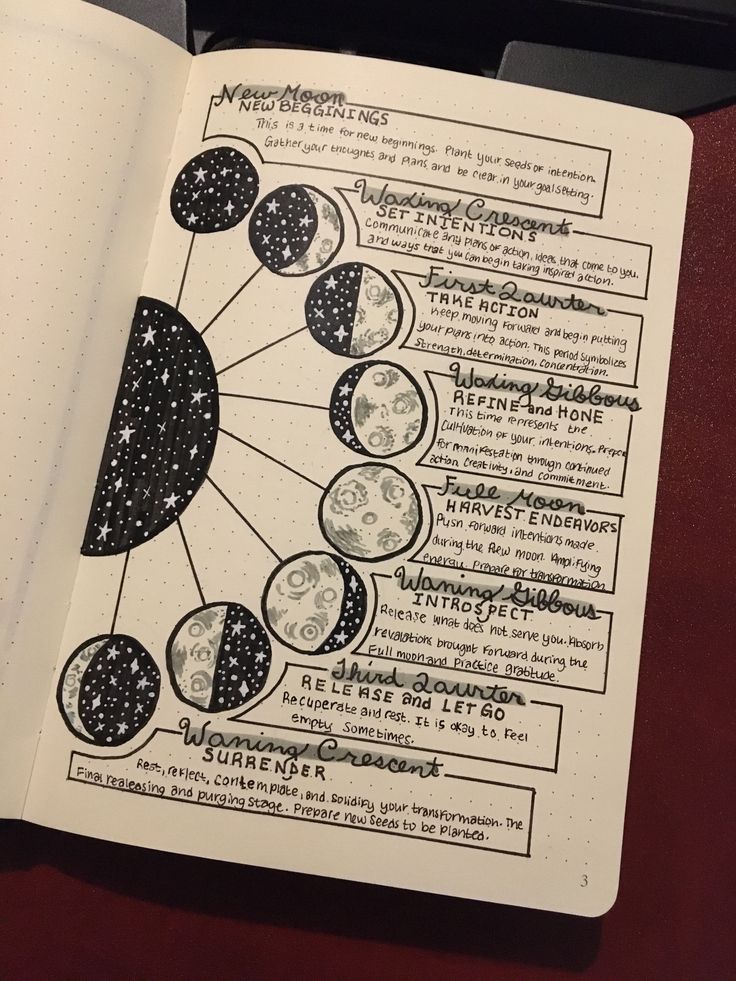 New Moon
NEW BEGGININGS
This is a time for new beginnings. Plant your seeds of intention.
Gather your thoughts and plans, and be clear in your goal setting.
Waxing Crescent
SET INTENTIONS
Communicate any plans of action, ideas that come to you,
and ways that you can begin taking inspired action.
First Quarter
TAKE ACTION
Keep moving forward and begin putting
your plans into action. This period symbolizes
strength, determination, concentration.
Waxing Gibbous
REFINE and HONE
This time represents the
cultivation of your intentions. Prepare
for manifestation through continued
action, creativity, and commitment.
Full Moon
HARVEST ENDEAVORS
Push forward intentions made
during the new moon. Amplifying
energy. Prepare for transformation
Waning Gibbous
INTROSPECT
Release what does not serve you. Absorb
revalations brought forward during the
Full moon and practice gratitude.
Third Quarter
RELEASE and LET GO
Recuperate and rest. It is okay to feel
empty sometimes.
Waning Crescent
SURRENDER
Rest, reflect, contemplate, and solidify your transformation. The
Final realeasing and purging stage. Prepare new seeds to be planted.
3